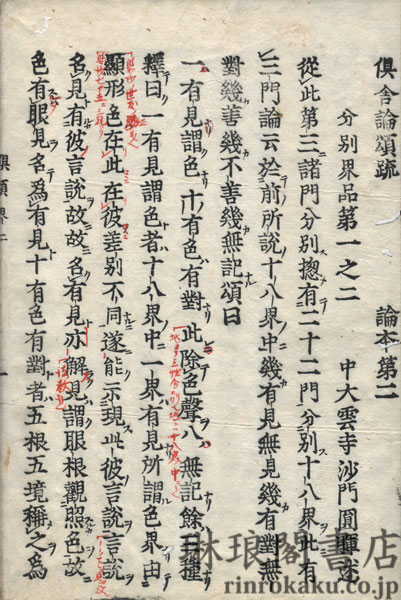 倶舎論頌疏　　論本第二
分別界品第一之二　中大雲寺沙門圓暉述
從此第三諸門分別揔有二十二門分別十八界此有
三門論云於前所說十八界中幾有見無見幾有對無
對幾善幾不善幾無記頌曰
一有見謂色　十有色有對　此除色聲八　無記餘三種
釋曰一有見謂色者十八界中一界有見所謂色界由
顯形色在此在彼差別不同遂能示現此彼言說言說
名見有彼言說故故名有見亦解見謂眼根觀照色故
色有眼見名爲有見十有色有對者五根五境稱之爲
琳琅閣書店
rinrokaku.co.jp